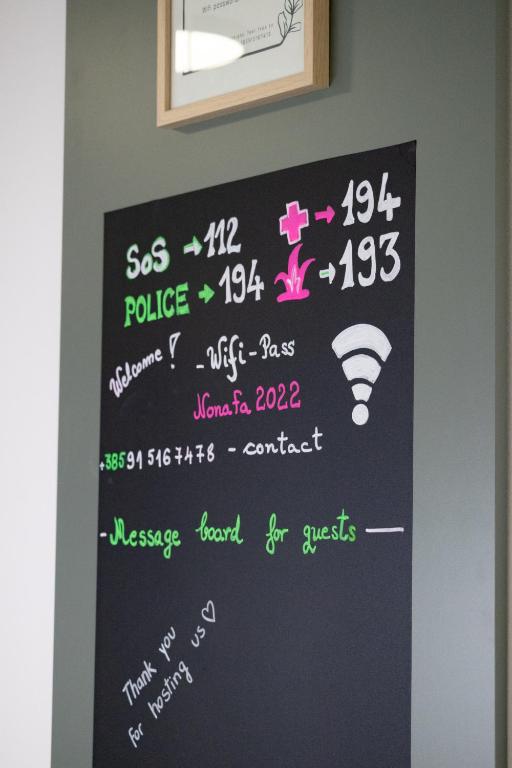 Wifi password
SOS → 112
→ 194
POLICE → 194
→ 193
Welcome!
- Wifi - Pass
Nonafa 2022
+385915167478 - contact
- Message board for guests —
Thank you
for hosting us ♡